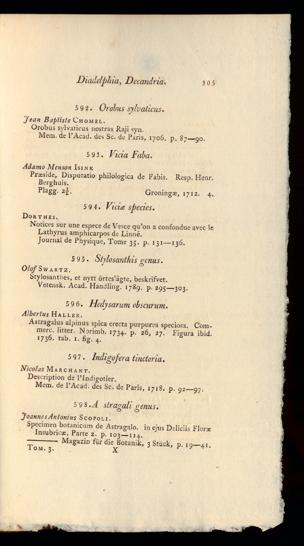 Diadelphia, Decandria. 305
592. Orobus sylvaticus.
Jean Baptiste CHOMEL.
Orobus sylvaticus nostras Raji syn.
Mem. de l'Acad. des Sc. de Paris, 1706. p. 87—90.
593. Vicia Faba.
Adamo Menson ISINK
Præside, Disputatio philologica de Fabis. Resp. Henr.
Berghuis.
Plagg. 2½. Groningæ, 1712. 4.
594. Viciæ species.
DORTHES.
Notices sur une espece de Vesce qu'on a confondue avec le
Lathyrus amphicarpos de Linné.
Journal de Physique, Tome 35. p. 131—136.
595. Stylosanthis genus.
Olof SWARTZ.
Stylosanthes, et nytt örteslägte, beskrifvet.
Vetensk. Acad. Handling. 1789. p. 295—303.
596. Hedysarum obscurum.
Albertus HALLER.
Astragalus alpinus spica erecta purpurea speciosa. Com-
merc. litter. Norimb. 1734. p. 26, 27. Figura ibid.
1736. tab. 1. fig. 4.
597. Indigofera tinctoria.
Nicolas MARCHANT.
Description de l'Indigotier.
Mem. de l'Acad. des Sc. de Paris, 1718. p. 92—97.
598. A stragali genus.
Joannes Antonius SCOPOLI.
Specimen botanicum de Astragalo. in ejus Deliciis Floræ
Insubricæ, Parte 2. p. 103—114.
——— Magazin für die Botanik, 3 Stück, p. 19—41.
TOM. 3. X